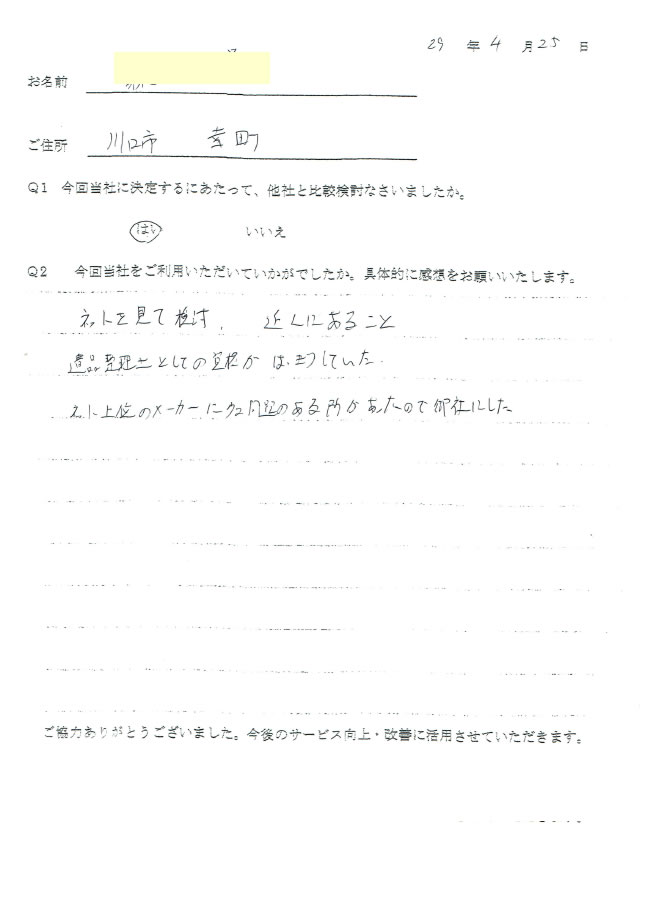 29 年 4 月 25 日
お名前
ご住所 川口市 幸町
Q1 今回当社に決定するにあたって、他社と比較検討なさいましたか。
はい いいえ
Q2 今回当社をご利用いただいていかがでしたか。具体的に感想をお願いいたします。
ネットを見て検討、 近くにあること
遺品整理士としての資格がはっきりしていた。
ネット上位のメーカーに のある所があったので御社にした
ご協力ありがとうございました。今後のサービス向上・改善に活用させていただきます。